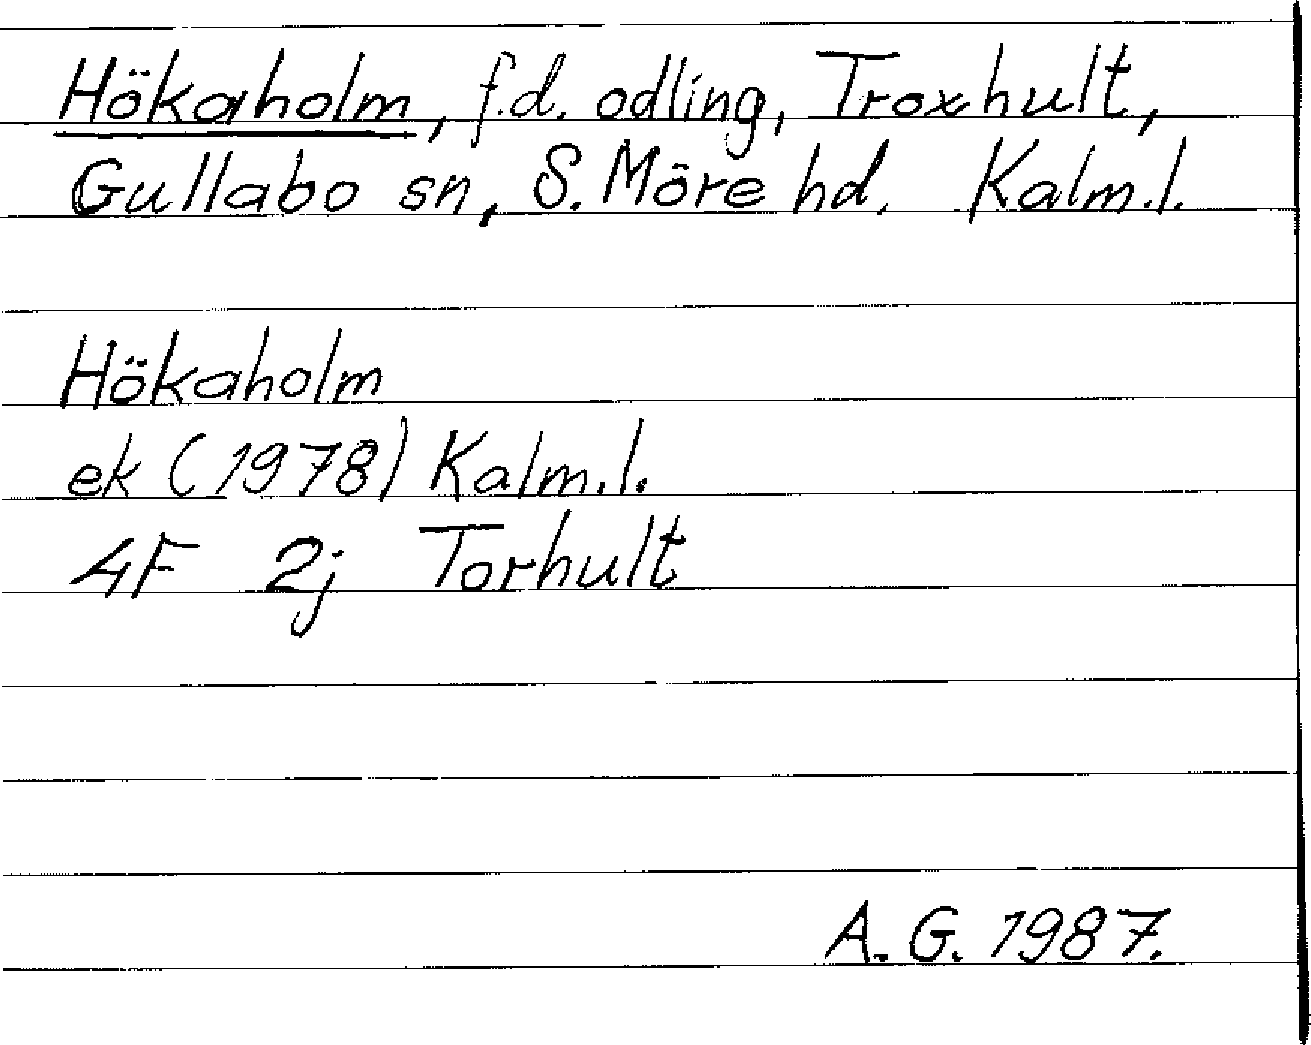 Hökaholm, f.d. odling, Troxhult,
Gullabo sn, S. Möre hd. Kalm.l.
Hökaholm
ek (1978) Kalm.l.
4F 2j Torhult
A. G. 1987.